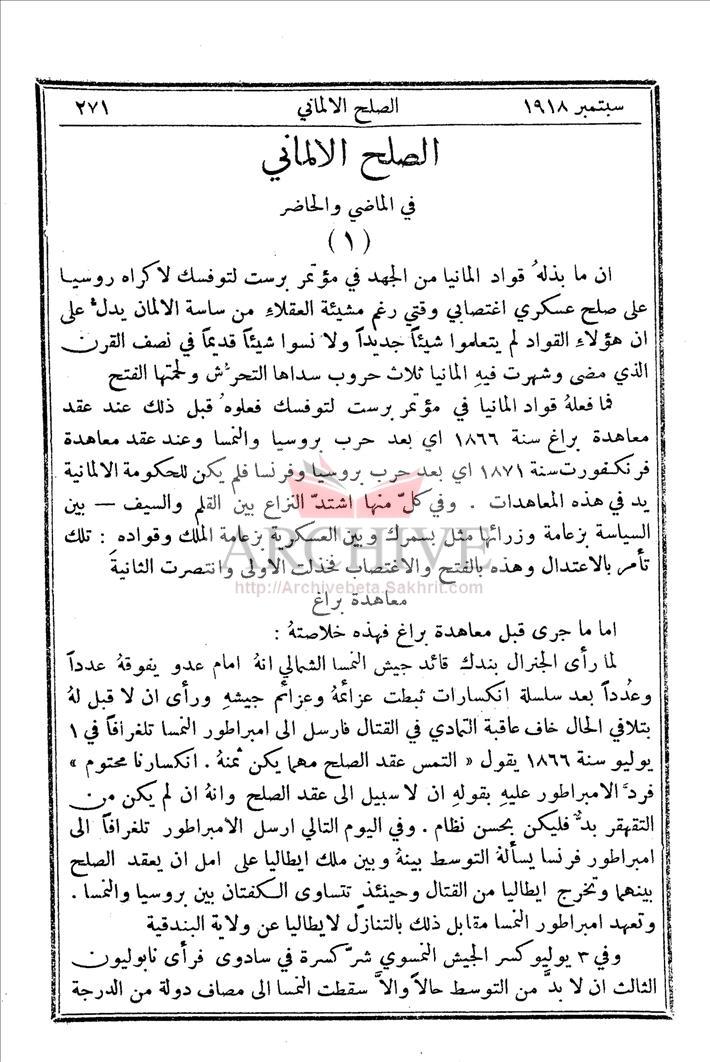 سبتمبر ١٩١٨ الصلح الالماني ٢٧١
الصلح الالماني
في الماضي والحاضر
(١)
ان ما بذلهُ قواد المانيا من الجهد في مؤتمر برست لتوفسك لاكراه روسيا
على صلح عسكري اغتصابي وقتي رغم مشيئة العقلاءِ من ساسة الالمان يدلُّ على
ان هؤلاءِ القواد لم يتعلموا شيئاً جديداً ولا نسوا شيئاً قديماً في نصف القرن
الذي مضى وشهرت فيهِ المانيا ثلاث حروب سداها التحرُّش ولحمتها الفتح
فما فعلهُ قواد المانيا في مؤتمر برست لتوفسك فعلوه قبل ذلك عند عقد
معاهدة براغ سنة ١٨٦٦ اي بعد حرب بروسيا والنمسا وعند عقد معاهدة
فرنكفورت سنة ١٨٧١ اي بعد حرب بروسيا وفرنسا فلم يكن للحكومة الالمانية
يد في هذه المعاهدات . وفي كلّ منها اشتدّ النزاع بين القلم والسيف — بين
السياسة بزعامة وزرائها مثل بسمرك وبين العسكرية بزعامة الملك وقواده : تلك
تأمر بالاعتدال وهذه بالفتح والاغتصاب فخذلت الاولى وانتصرت الثانية
معاهدة براغ
اما ما جرى قبل معاهدة براغ فهذه خلاصتهُ :
لما رأى الجنرال بندك قائد جيش النمسا الشمالي انهُ امام عدو يفوقهُ عدداً
وعُدداً بعد سلسلة انكسارات ثبطت عزائمهُ وعزائم جيشهِ ورأى ان لا قبل لهُ
بتلافي الحال خاف عاقبة التمادي في القتال فارسل الى امبراطور النمسا تلغرافاً في ١
يوليو سنة ١٨٦٦ يقول « التمس عقد الصلح مهما يكن ثمنهُ . انكسارنا محتوم »
فردَّ الامبراطور عليهِ بقولهِ ان لا سبيل الى عقد الصلح وانهُ ان لم يكن من
التقهقر بدٌّ فليكن بحسن نظام . وفي اليوم التالي ارسل الامبراطور تلغرافاً الى
امبراطور فرنسا يسألهُ التوسط بينهُ وبين ملك ايطاليا على امل ان يعقد الصلح
بينهما وتخرج ايطاليا من القتال وحينئذ تتساوى الكفتان بين بروسيا والنمسا .
وتعهد امبراطور النمسا مقابل ذلك بالتنازل لايطاليا عن ولاية البندقية
وفي ٣ يوليو كسر الجيش النمسوي شرّ كسرة في سادوى فرأى نابوليون
الثالث ان لا بدَّ من التوسط حالاً والاَّ سقطت النمسا الى مصاف دولة من الدرجة
ARCHIVE
http://Archivebeta.Sakhrit.com